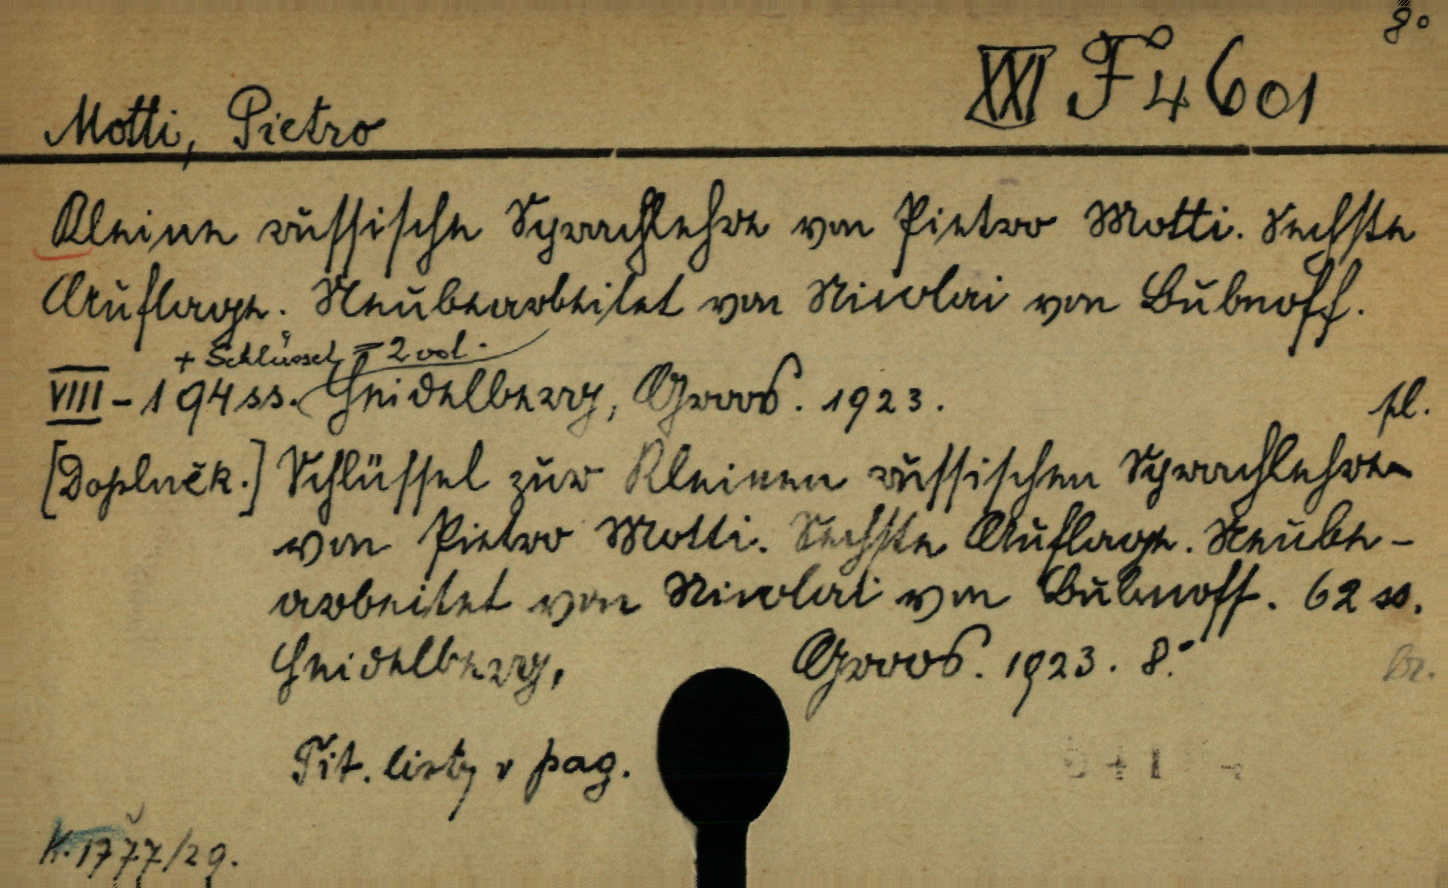 8°
XXI F 4601
Motti, Pietro
Kleine russische Sprachlehre von Pietro Motti. Sechste
Auflage. Neubearbeitet von Nicolai von Bubnoff.
+ Schlüssel = 2 vol.
VIII - 194 ss. Heidelberg, Groos. 1923.
pl.
[Doplněk.] Schlüssel zur Kleinen russischen Sprachlehre
von Pietro Motti. Sechste Auflage. Neube-
arbeitet von Nicolai von Bubnoff. 62 ss.
Heidelberg, Groos. 1923. 8°
br.
Tit. listy v pag.
K. 1777/29.